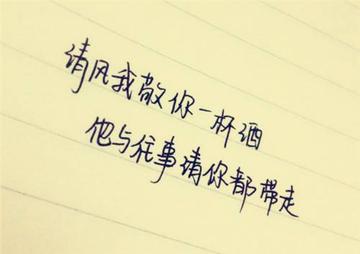 清风我敬你一杯酒
他与往事请你都带走